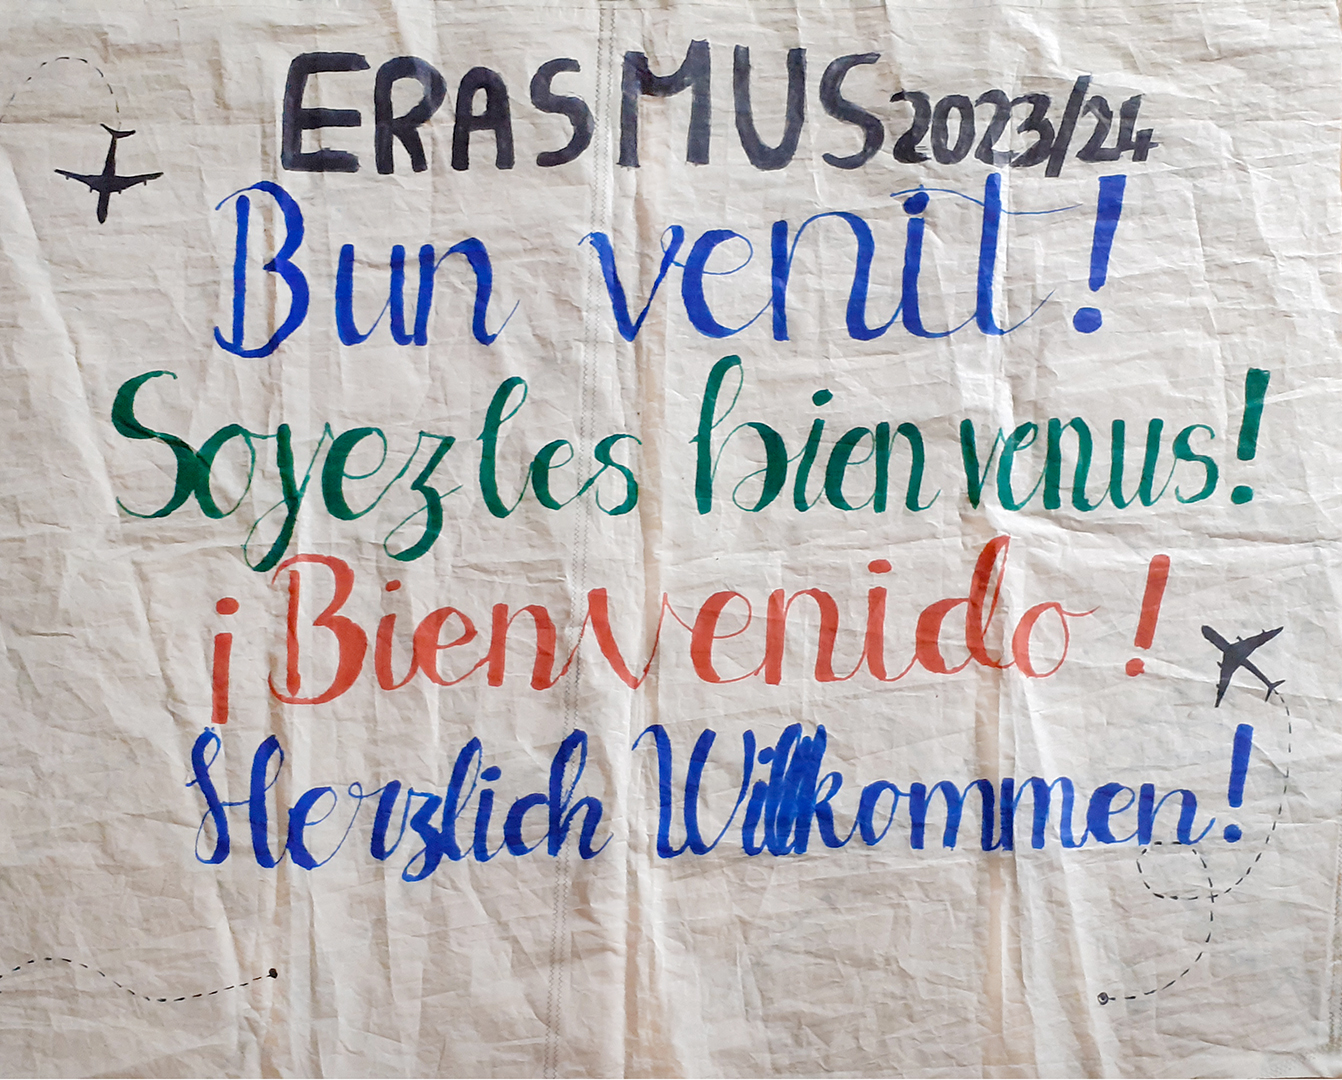 ERASMUS 2023/24
Bun venit!
Soyez les bienvenus!
¡Bienvenido!
Herzlich Willkommen!